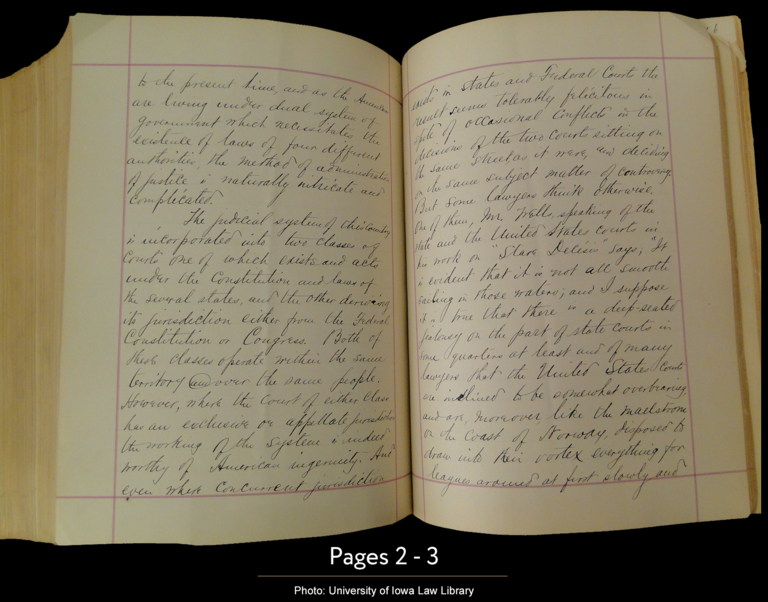 to the present time, and as the American
are living under dual system of
government which necessitates the
existence of laws of four different
authorities, the method of administration
of justice is naturally intricate and
complicated.
The judicial system of this Country
is incorporated into two classes of
Courts one of which exists and acts
under the Constitution and laws of
the several states, and the other deriving
its jurisdiction either from the Federal
Constitution or Congress. Both of
these classes operate within the same
territory and over the same people.
However, where the Court of either Class
has an exclusive or appellate jurisdiction
the working of the system is indeed
worthy of American ingenuity. And
even where concurrent jurisdiction
exists in States and Federal Courts the
result seems tolerably felicitous in
spite of occasional conflicts in the
decisions of the two Courts sitting on
the same as it were, and deciding
on the same subject matter of controversy.
But some lawyers think otherwise.
One of them, Mr. Wells, speaking of the
state and the United States courts in
his work on "Stare Decisis" says; "It
is evident that it is not all smooth
sailing in those waters; and I suppose
it is true that there is a deep seated
jealousy on the part of state courts in
some quarters at least and of many
lawyers that the United States Courts
are inclined to be somewhat overbearing,
and are, moreover, like the maelstrom
on the Coast of Norway, disposed to
draw into their vortex everything for
leagues around at first slowly and
Pages 2 - 3
Photo: University of Iowa Law Library